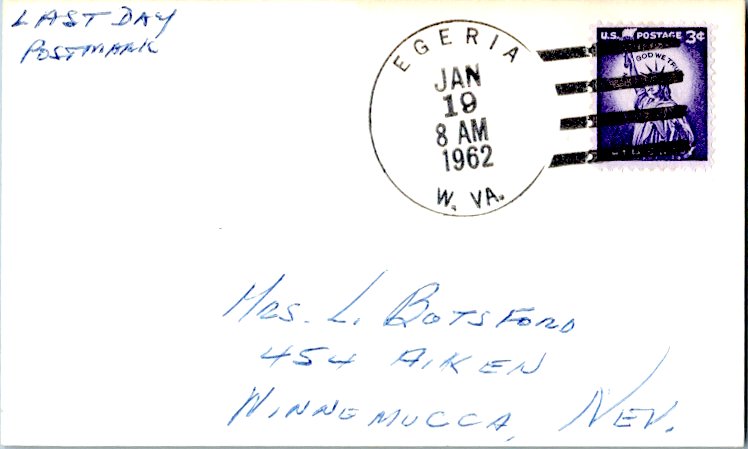 LAST DAY
POSTMARK
EGERIA
JAN
19
8 AM
1962
W. VA.
U.S. POSTAGE 3¢
GOD WE TRU
MRS. L. BOTSFORD
454 AIKEN
WINNEMUCCA, NEV.